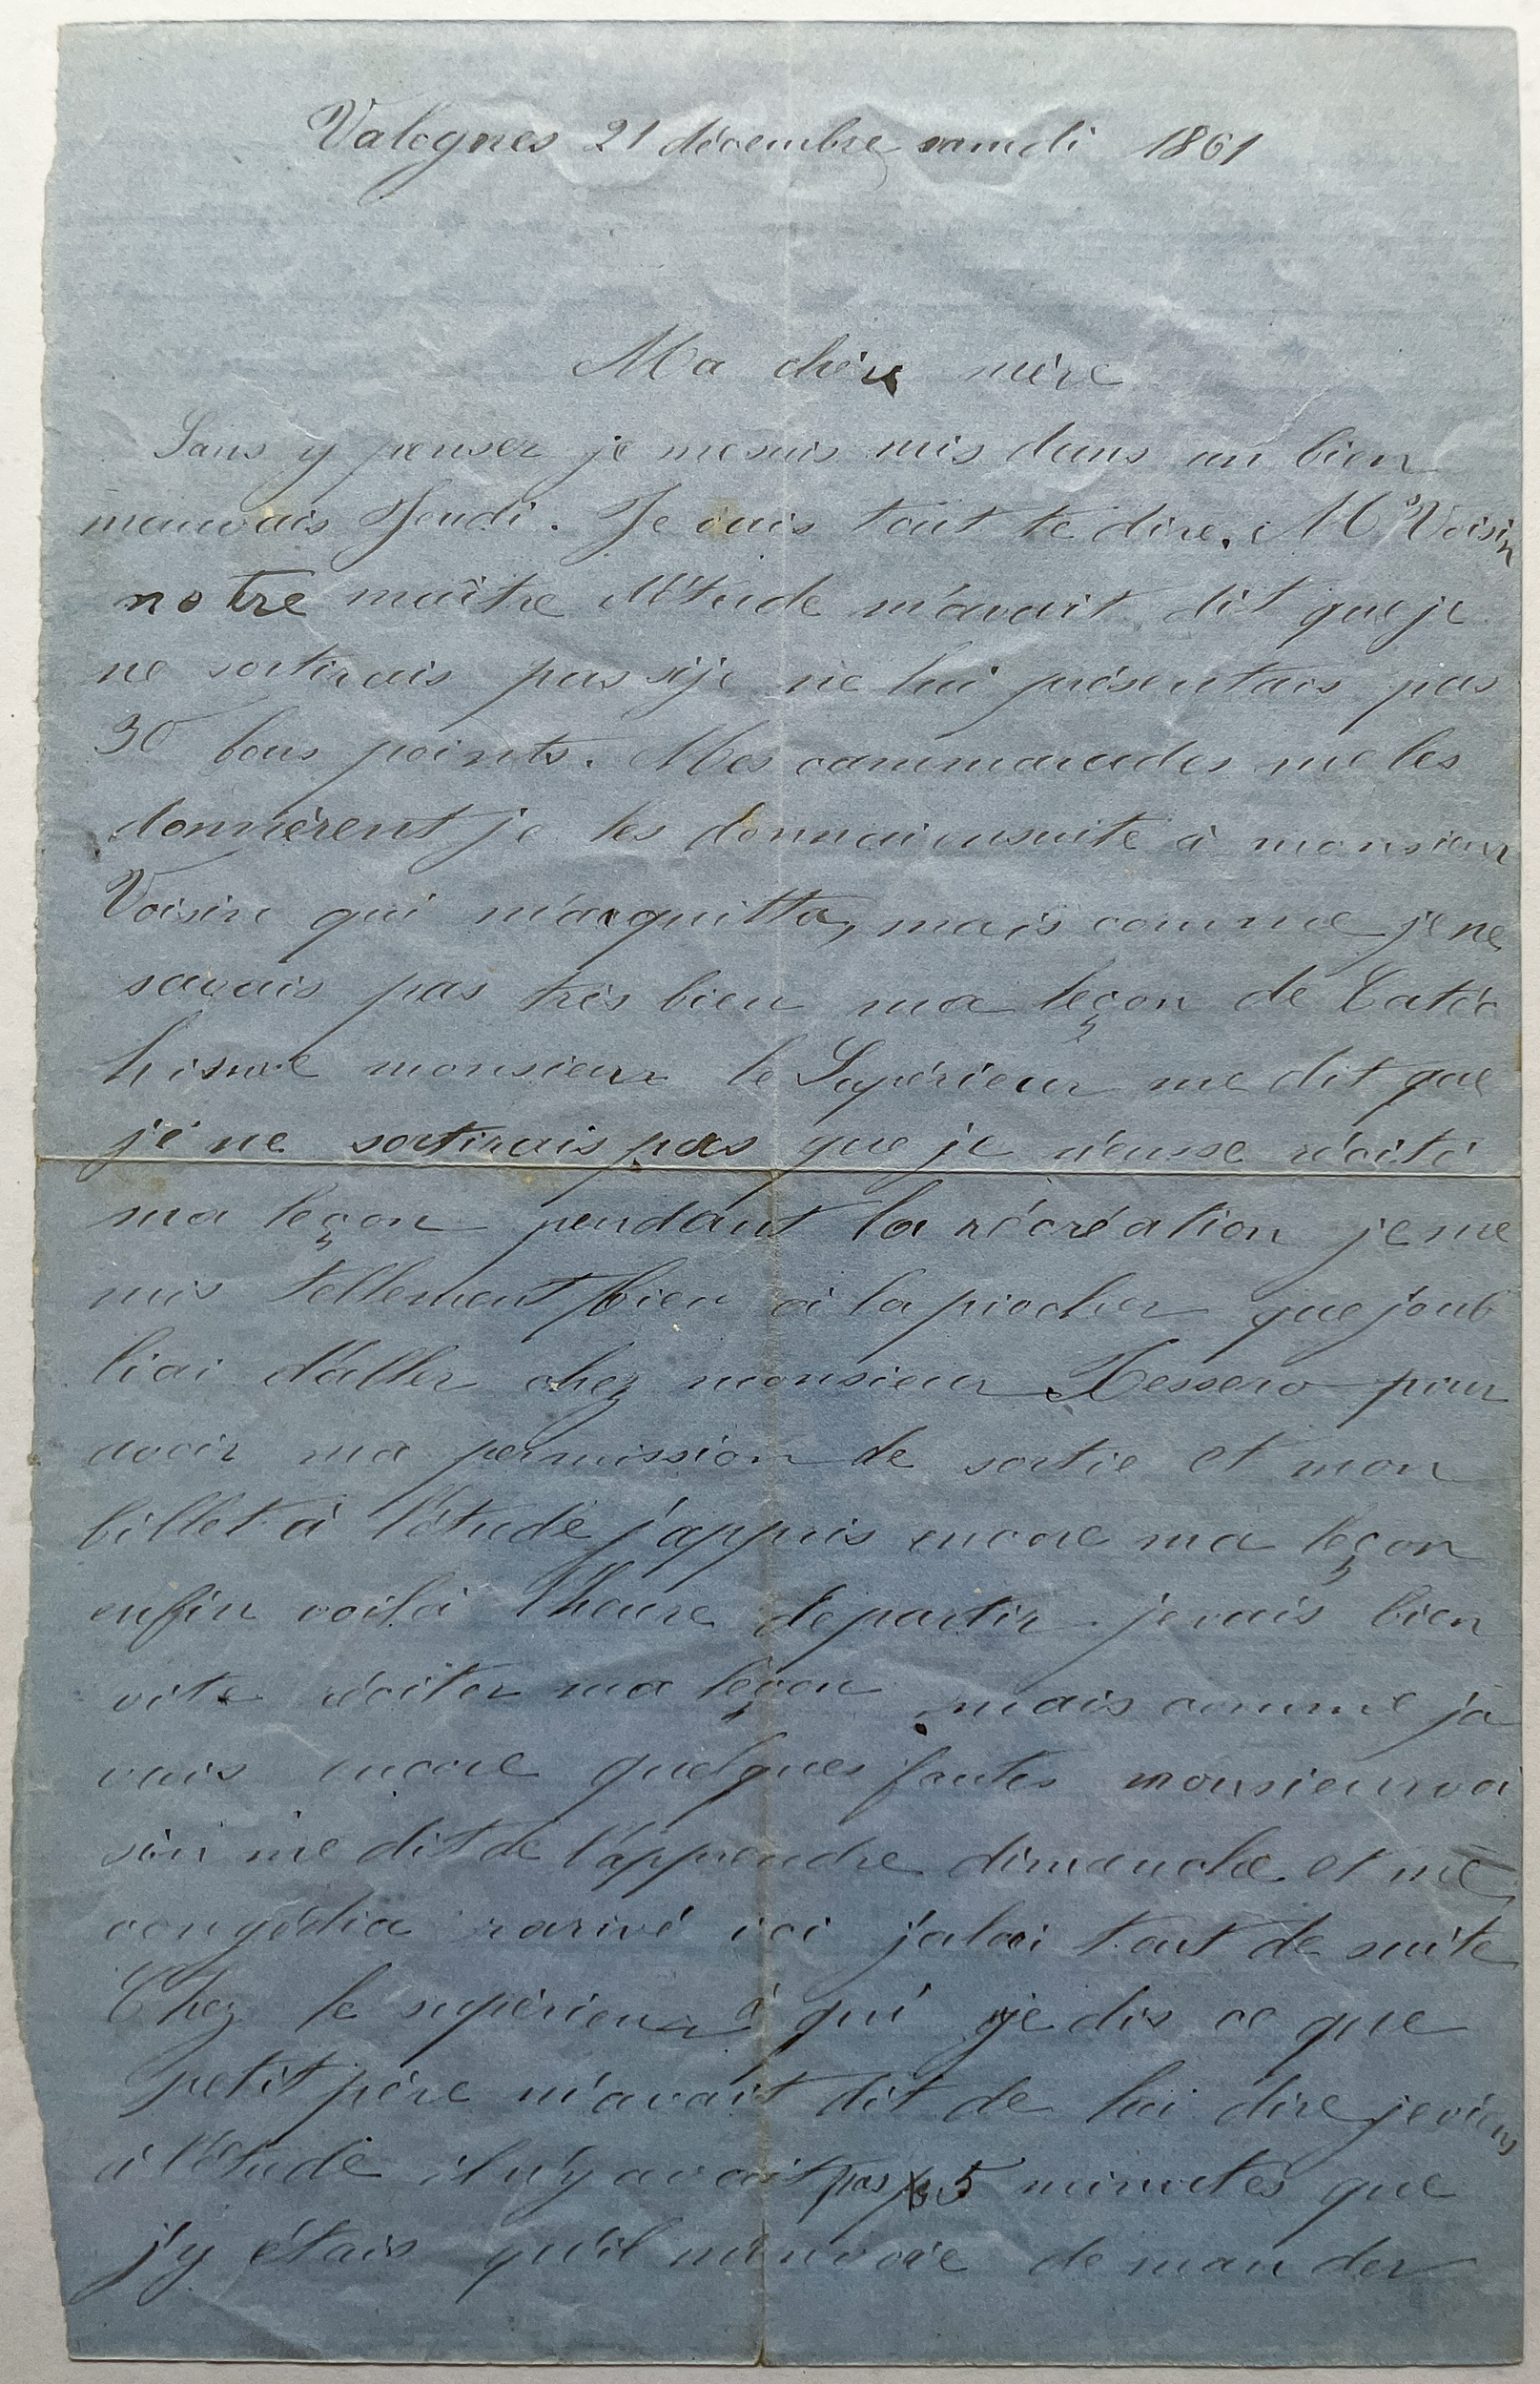 Valognes 21 décembre samedi 1861
Ma chère mère
Sans y penser je mesuis mis dans un bien
mauvais Jeudi. Je vais tout te dire. Mr Voisin
notre maître d'étude m'avait dit que je
ne sortirais pas sije ne lui présentais pas
30 bons points. Mes cammarades me les
donnèrent je les donnai ensuite à monsieur
Voisin qui m'acquitta, mais comme je ne
savais pas très bien ma leçon de Catéc
hisme monsieur le Supérieur me dit que
je ne sortirais pas que je n'eusse récité
ma leçon pendant la récréation je me
mis tellement bien à la piocher que j'oub
liai d'aller chez monsieur pour
avoir ma permission de sortie et mon
billet à l'étude j'appris encore ma leçon
enfin voilà l'heure de partir je vais bien
vite réciter ma leçon mais comme j'a
vais encore quelques fautes monsieur voi
sin me dit de l'apprendre dimanche et me
congédia rarivé ici j'alai tout de suite
Chez le supérieur à qui je dis ce que
petit père m'avait dit de lui dire je viens
à l'étude il n'y avait pas 5 minutes que
j'y étais qu'il m'envoie demander